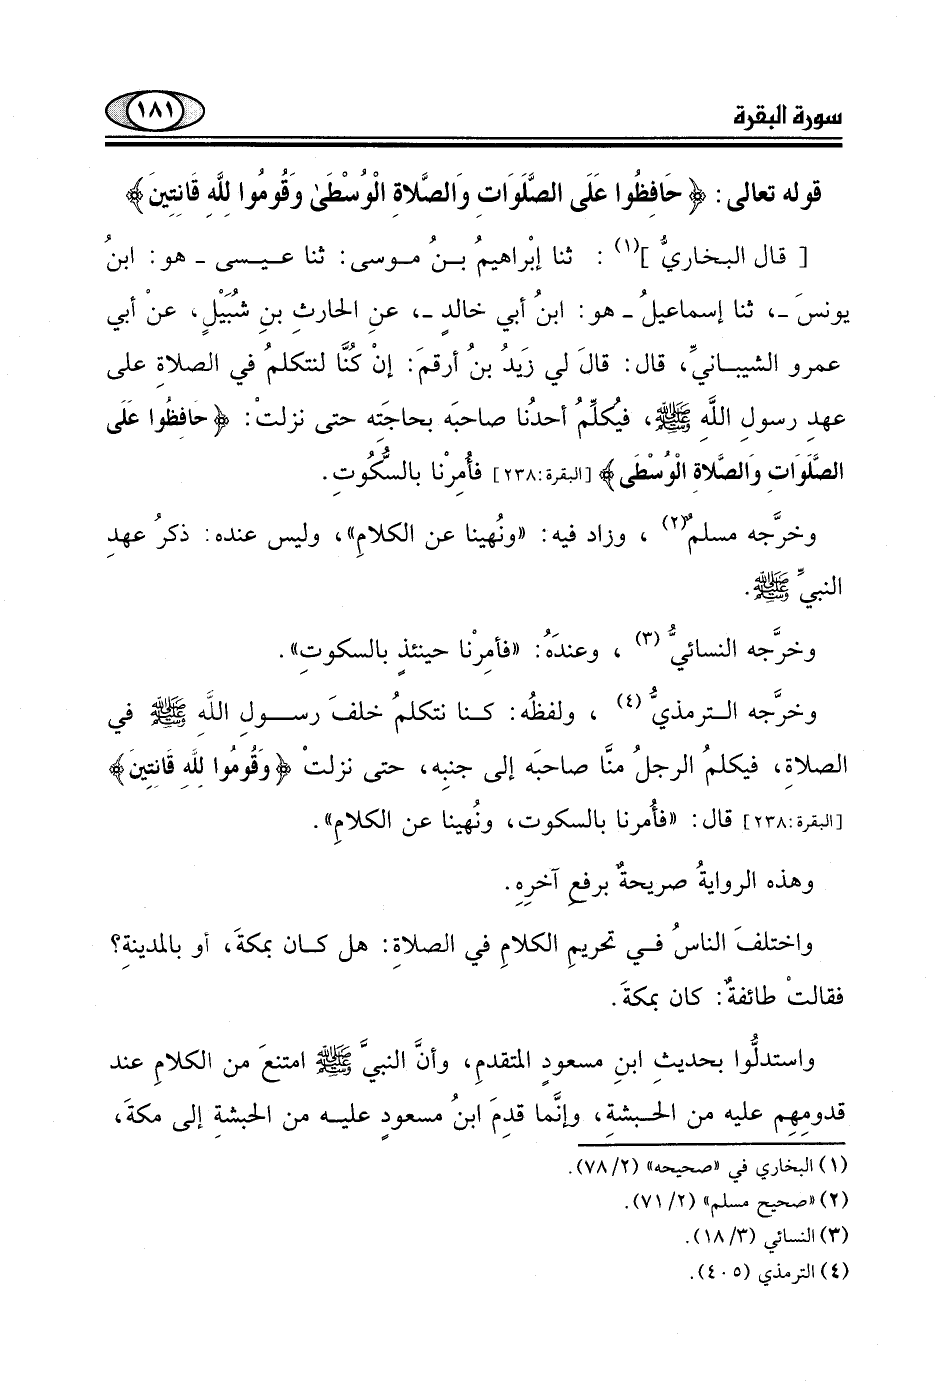 سورة البقرة
١٨١
قوله تعالى : ﴿ حَافِظُوا عَلَى الصَّلَوَاتِ وَالصَّلاةِ الْوُسْطَىٰ وَقُومُوا لِلَّهِ قَانِتِينَ ﴾
[ قال البخاريُّ ](١) : ثنا إبْراهيمُ بـنُ مـوسى: ثنا عيـسى ـ هو: ابنُ
يونسَ ـ، ثنا إسماعيلُ ـ هو: ابنُ أبي خالدٍ ـ، عنِ الحارثِ بنِ شُبَيْلٍ، عنْ أبي
عمرو الشيبـانيِّ، قال: قالَ لي زَيدُ بنُ أرقمَ: إنْ كُنَّا لنتكلمُ في الصلاةِ على
عهدِ رسولِ اللَّهِ ﷺ، فيُكلِّمُ أحدُنا صاحبَه بحاجَتِه حتى نزلتْ: ﴿ حَافِظُوا عَلَى
الصَّلَوَاتِ وَالصَّلاةِ الْوُسْطَى ﴾ [البقرة:٢٣٨] فأُمِرْنا بالسُّكُوتِ.
وخرَّجه مسلمٌ(٢) ، وزاد فيه: «ونُهينا عن الكلامِ»، وليس عنده: ذكرُ عهدِ
النبيِّ ﷺ.
وخرَّجه النسائيُّ (٣) ، وعندَهُ: «فأمِرْنا حينئذٍ بالسكوتِ».
وخرَّجه الـترمذيُّ (٤) ، ولفظُه: كـنا نتكلمُ خلفَ رسـولِ اللَّهِ ﷺ في
الصلاةِ، فيكلمُ الرجلُ منَّا صاحبَه إلى جنبِه، حتى نزلتْ ﴿ وَقُومُوا لِلَّهِ قَانِتِينَ ﴾
[البقرة:٢٣٨] قال: «فأُمرنا بالسكوت، ونُهينا عن الكلامِ».
وهذه الروايةُ صريحةٌ برفعِ آخرِهِ.
واختلفَ الناسُ فـي تحريمِ الكلامِ في الصلاةِ: هل كـان بمكةَ، أو بالمدينةِ؟
فقالتْ طائفةٌ: كان بمكةَ.
واستدلُّوا بحديثِ ابنِ مسعودٍ المتقدمِ، وأنَّ النبيَّ ﷺ امتنعَ من الكلامِ عند
قدومِهِم عليه من الحـبشةِ، وإنَّما قدِمَ ابنُ مسعودٍ عليـه من الحبشةِ إلى مكةَ،
(١) البخاري في «صحيحه» (٧٨/٢).
(٢) «صحيح مسلم» (٧١/٢).
(٣) النسائي (١٨/٣).
(٤) الترمذي (٤٠٥).